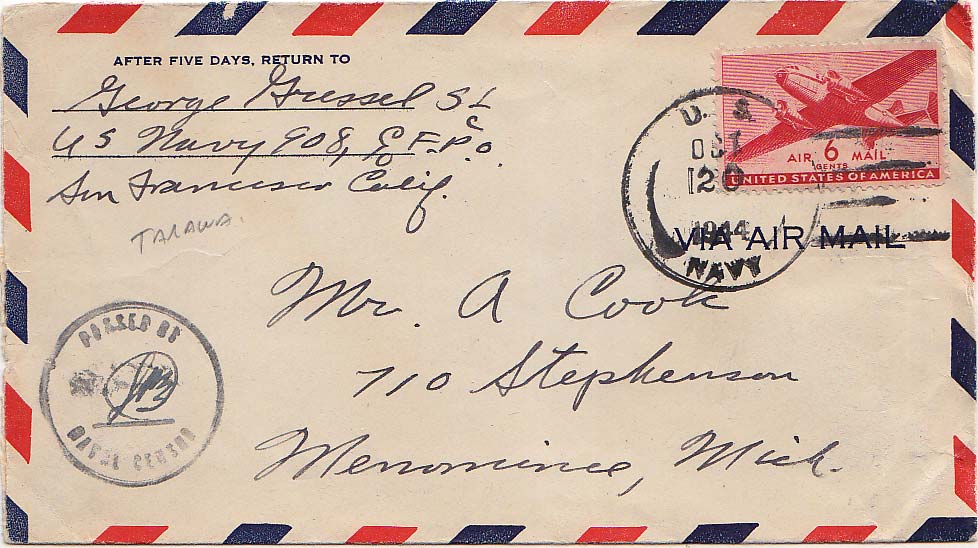 AFTER FIVE DAYS, RETURN TO
George Gressel S C
US Navy 908, % F.P.O.
San Francisco Calif.
TARAWA.
U. S.
OCT
20
1944
NAVY
AIR 6 MAIL
CENTS
UNITED STATES OF AMERICA
VIA AIR MAIL
Mr. A Cook
710 Stephenson
Menominee, Mich.
PASSED BY
NAVAL CENSOR